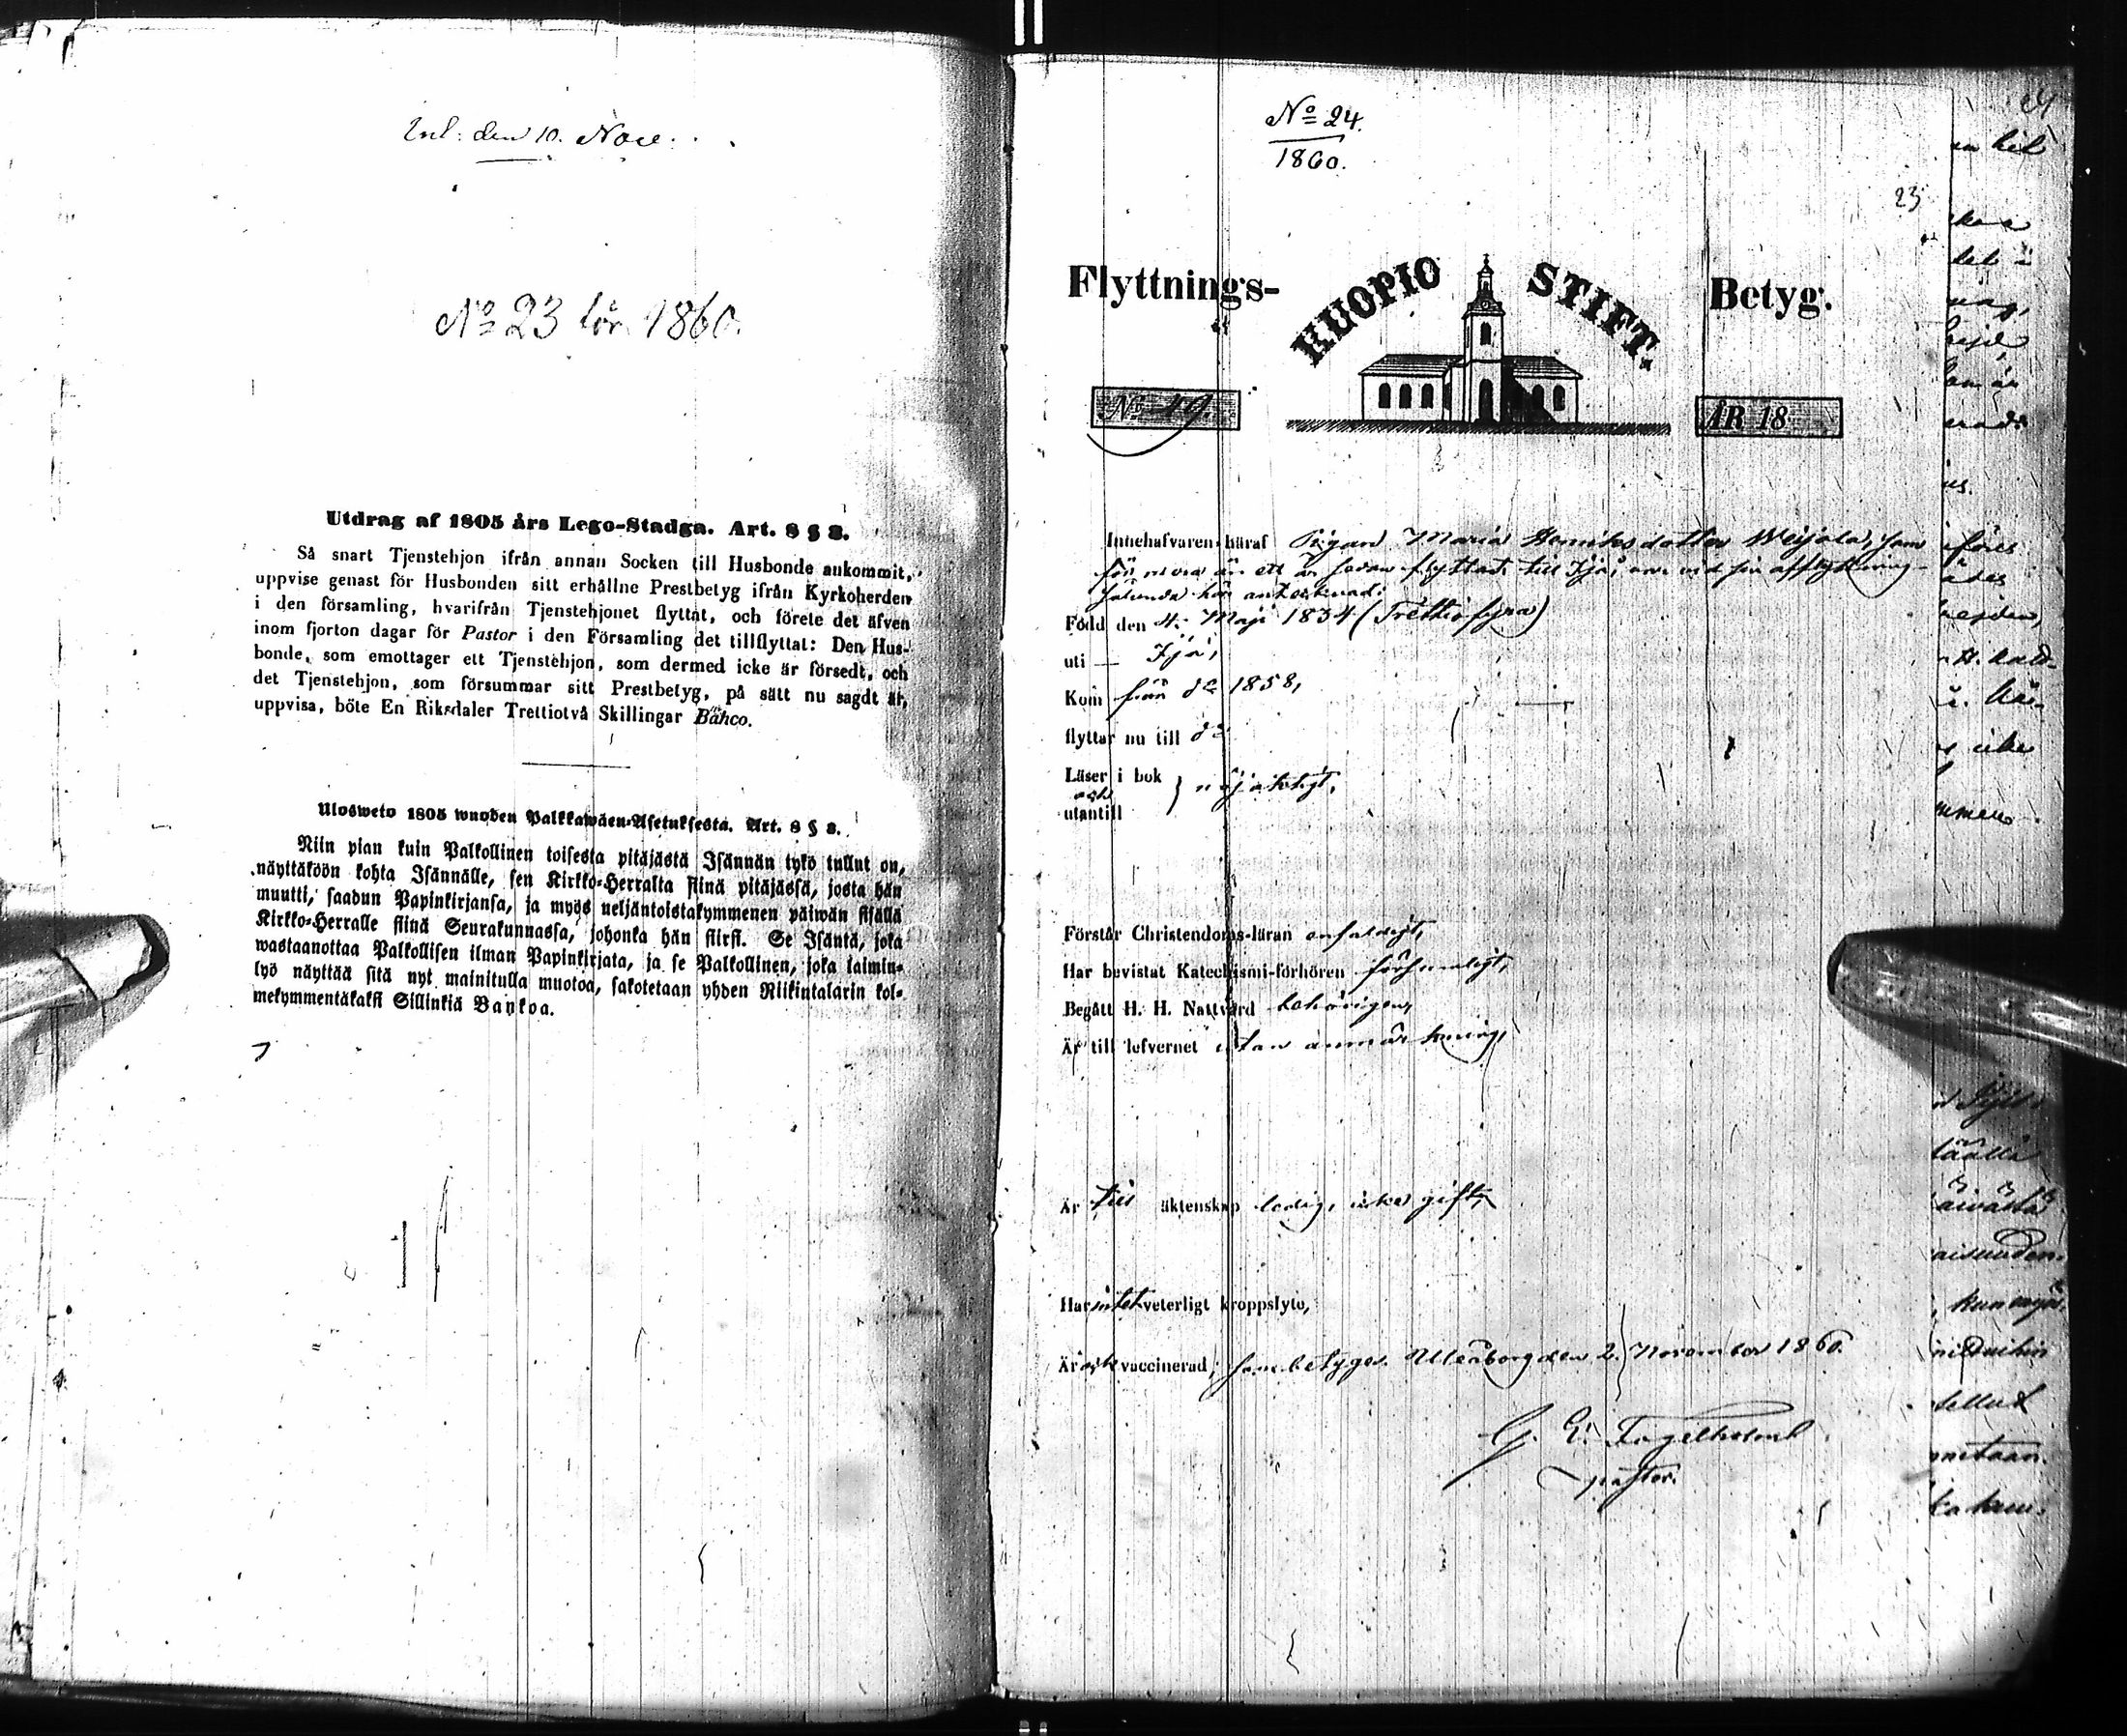 Inl: den 10. Nov:
No 23 för 1860.
Utdrag af 1805 års Lego-Stadga. Art. 8 § 8.
Så snart Tjenstehjon ifrån annan Socken till Husbonde ankommit,
uppvise genast för Husbonden sitt erhållne Prestbetyg ifrån Kyrkoherden
i den församling, hvarifrån Tjenstehjonet flyttat, och förete det äfven
inom fjorton dagar för Pastor i den Församling det tillflyttat: Den Hus-
bonde, som emottager ett Tjenstehjon, som dermed icke är försedt, och
det Tjenstehjon, som försummar sitt Prestbetyg, på sätt nu sagdt är,
uppvisa, böte En Riksdaler Trettiotvå Skillingar Banco.
Ulosweto 1805 wuoden Palkkawäen-Asetuksesta. Art. 8 § 8.
Niin pian kuin Palkollinen toisesta pitäjästä Isännän tykö tullut on,
näyttäköön kohta Isännälle, sen Kirkko-Herralta siinä pitäjässä, josta hän
muutti, saadun Papinkirjansa, ja myös neljäntoistakymmenen päiwän sisällä
Kirkko-Herralle siinä Seurakunnassa, johonka hän siirsi. Se Isäntä, joka
wastaanottaa Palkollisen ilman Papinkirjata, ja se Palkollinen, joka laimin-
lyö näyttää sitä nyt mainitulla muotoa, sakotetaan yhden Riikintalarin kol-
mekymmentäkaksi Sillinkiä Bankoa.
No 24.
1860.
23
Flyttnings- KUOPIO STIFT. Betyg.
No 49. ÅR 18
Innehafvaren häraf Pigan Maria Henriksdotter Weijola, som
för mera än ett år sedan flyttat till Ijo, var vid sin afflyttning
sålunda här antecknad:
Född den 4. Maji 1834 (Trettiofyra)
uti — Ijo,
Kom från do 1858,
flyttar nu till do
Läser i bok
och
utantill } nöjaktigt,
Förstår Christendoms-läran enfaldigt,
Har bevistat Katechismi-förhören försumligt,
Begått H. H. Nattvard behörigen,
Är till lefvernet utan anmärkning,
Är till äktenskap ledig, icke gift,
Har intet veterligt kroppslyte,
Är ock vaccinerad; som betygar. Uleåborg den 2. November 1860.
pastor.